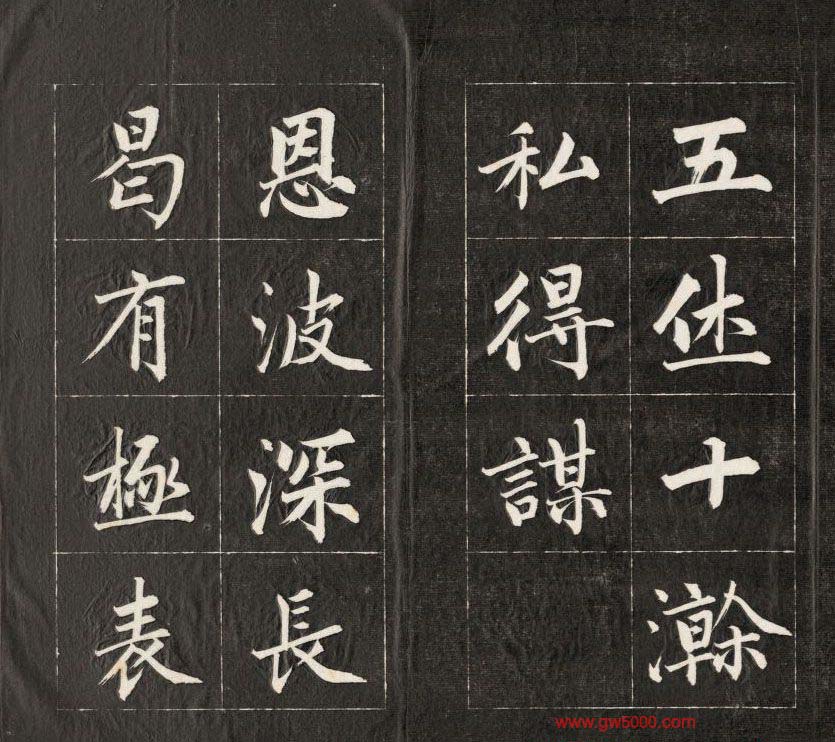 五休十澣
私得謀
恩波深長
曷有極表
www.gw5000.com